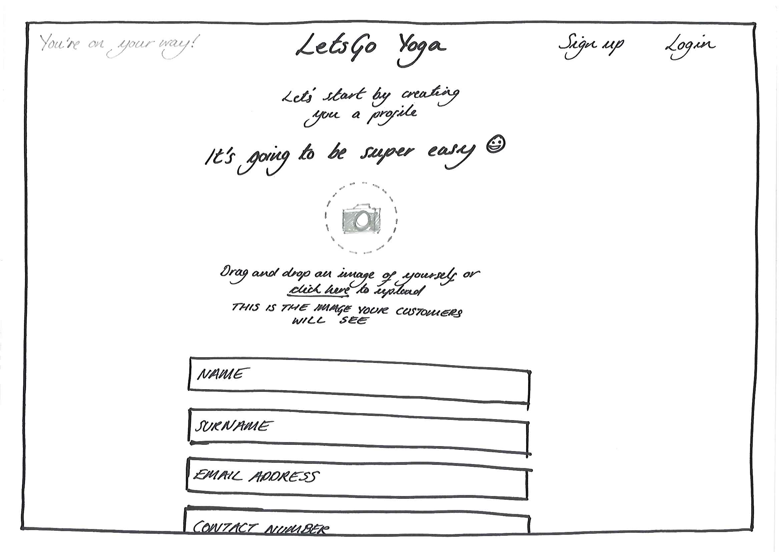 You're on your way!
LetsGo Yoga
Sign up
Login
Let's start by creating
you a profile
It's going to be super easy
Drag and drop an image of yourself or
click here to upload
THIS IS THE IMAGE YOUR CUSTOMERS
WILL SEE
NAME
SURNAME
EMAIL ADDRESS
CONTACT NUMBER